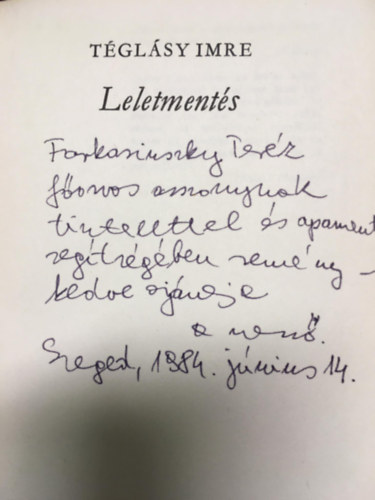 TÉGLÁSY IMRE
Leletmentés
Farkasinszky Teréz
főorvos asszonynak
tisztelettel és apament
segítségében remény-
kedve ajánlja
a szerző.
Szeged, 1984. június 14.